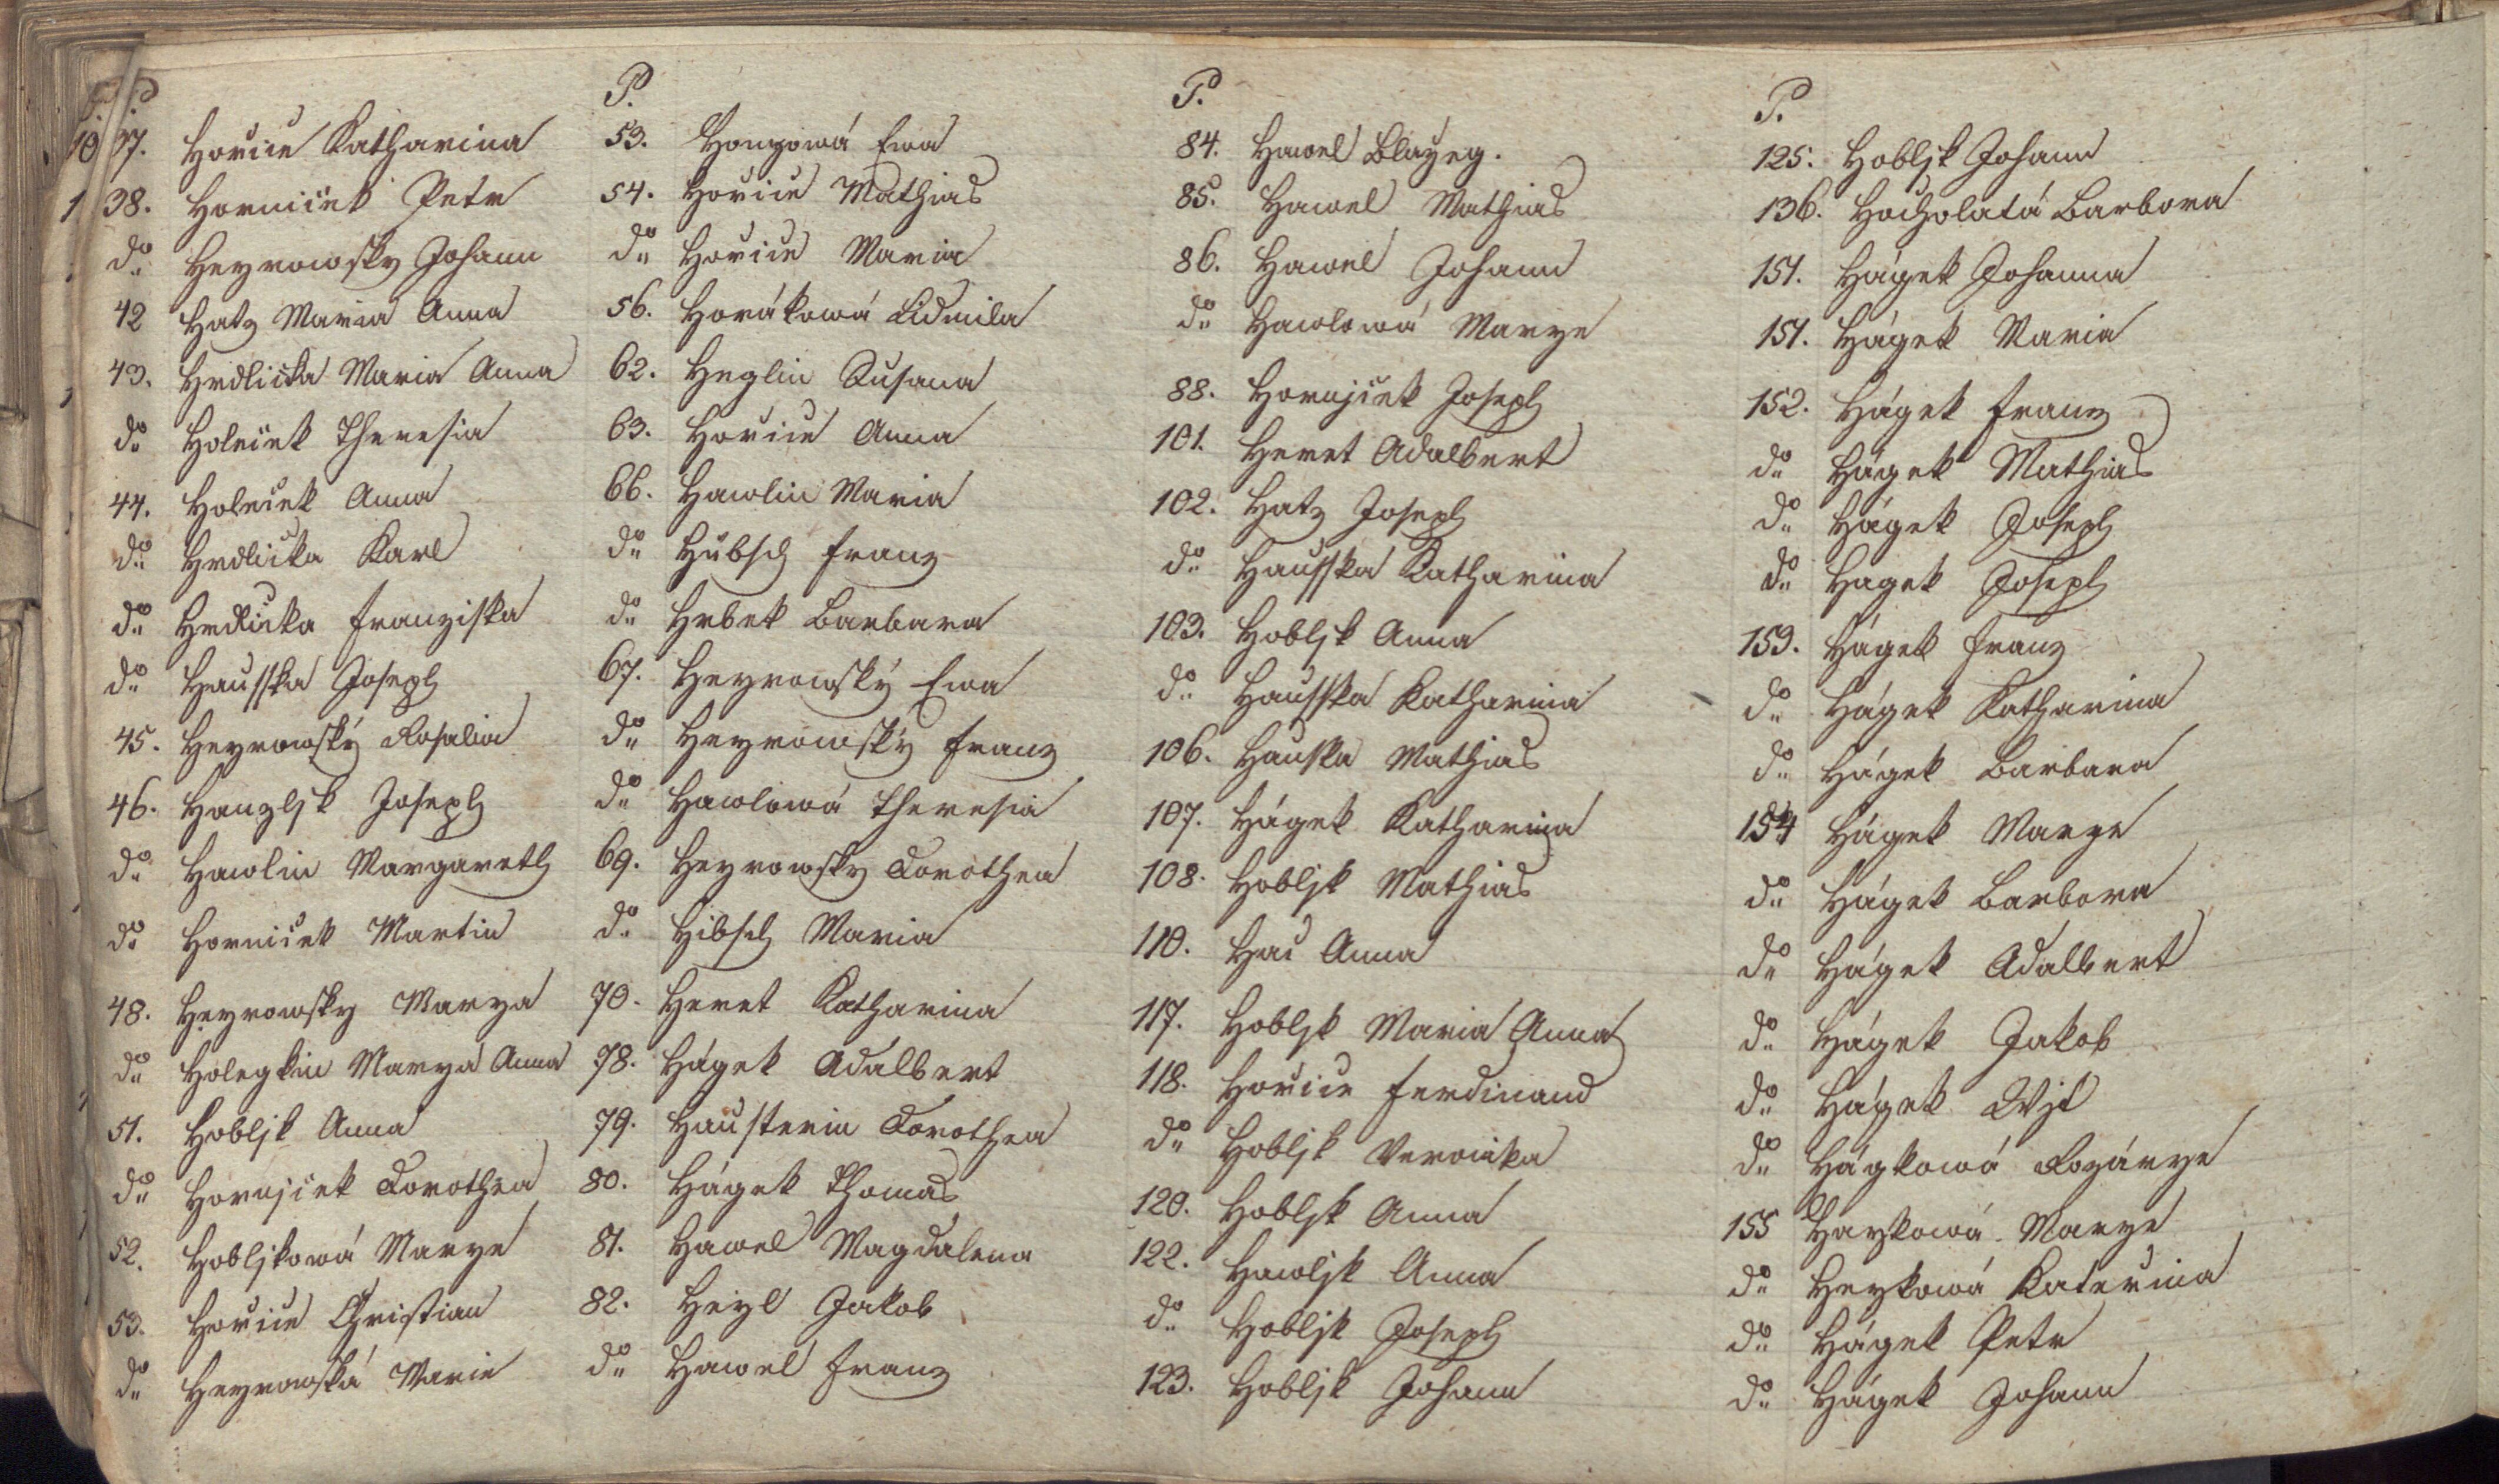 P.
37. Hořice Katharina
38. Hornicžek Petr
do Heyrowsky Johann
42 Hatz Maria Anna
43. Hrdlička Maria Anna
do Holeček Theresia
44. Holeček Anna
do Hrdlička Karl
do Hrdlička Franziska
do Hausska Joseph
45. Heyrowský Rosalia
46. Hanzljk Joseph
do Hawlin Margareth
do Horniček Martin
48. Heyrowsky Marya
do Holegkin Marya Anna
51. Hobljk Anna
do Hornjček Dorothea
52. Hobljkowá Marye
53. Hořice Christian
do Heyrowská Marie
P.
53. Ewa
54. Hořice Mathias
do Hořice Maria
56. Horákowá Lidmila
62. Heglin Susana
63. Hořice Anna
66. Hawlin Maria
do Hübsch Franz
do Hrbek Barbara
67. Heyrowský Ewa
do Heyrowský Franz
do Hawlowá Theresia
69. Heyrowsky Dorothea
do Hibsch Maria
70. Heret Katharina
78. Hágek Adalbert
79. Hausterin Dorothea
80. Hágek Thomas
81. Hawel Magdalena
82. Heyl Jakob
do Hawel Franz
P.
84. Hawel Blažeg.
85. Hawel Mathias
86. Hawel Johann
do Hawlowá Marye
88. Hornjček Joseph
101. Heret Adalbert
102. Hatz Joseph
do Hausska Katharina
103. Hobljk Anna
do Hausska Katharina
106. Hauska Mathias
107. Hágek Katharina
108. Hobljk Mathias
110. Anna
117. Hobljk Maria Anna
118. Hořice Ferdinand
do Hobljk Veronika
120. Hobljk Anna
122. Hawljk Anna
do Hobljk Joseph
123. Hobljk Johann
P.
125. Hobljk Johann
136. Hocholatá Barbora
151. Hágek Johanna
151. Hágek Maria
152. Hágek Franz
do Hágek Mathias
do Hágek Joseph
do Hagek Joseph
153. Hágek Franz
do Hágek Katharina
do Hágek Barbara
154 Hágek Marye
do Hágek Barbora
do Hágek Adalbert
do Hágek Jakob
do Hágek Wjt
do Hágkowá Rozárye
155 Haykowá Marye
do Heykowá Kateřina
do Hágek Petr
do Hágek Johann